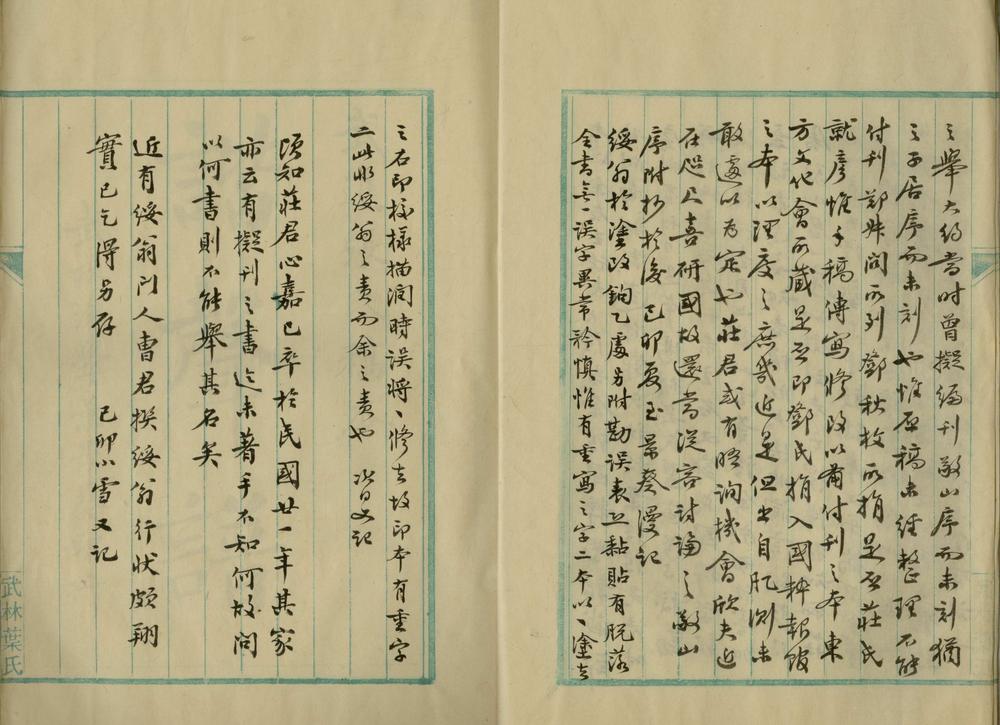 之舉大約當時曾擬編刊敬山序而未刻猶
之子居序而未刻也惟原稿未經整理不能
付刊鄭㫺問所列鄧秋枚所指是否莊氏
就彥惟手稿傳寫修改以備付刊之本東
方文化會所藏是否即鄧氏捐入國粹報館
之本以理度之庶幾近是但出自肊測未
敢遽以為定也莊君或有晤詢機會欣夫近
在咫尺喜研國故還當從容討論之敬山
序附抄於後己卯夏至景葵漫記
綏翁於塗改鉤乙處另附勘誤表並黏貼有脫落
全書無一誤字異常矜慎惟有重寫之字二本以丶塗去
之右印樣樣描潤時誤將丶修去故印本有重字
二此非綏翁之責而余之責也 次日又記
頃知莊君心嘉已卒於民國廿一年其家
亦云有擬刊之書迄未著手不知何故問
以何書則不能舉其名矣
近有綏翁門人曹君撰綏翁行狀頗翔
實已乞得另存 己卯小雪又記
武林葉氏